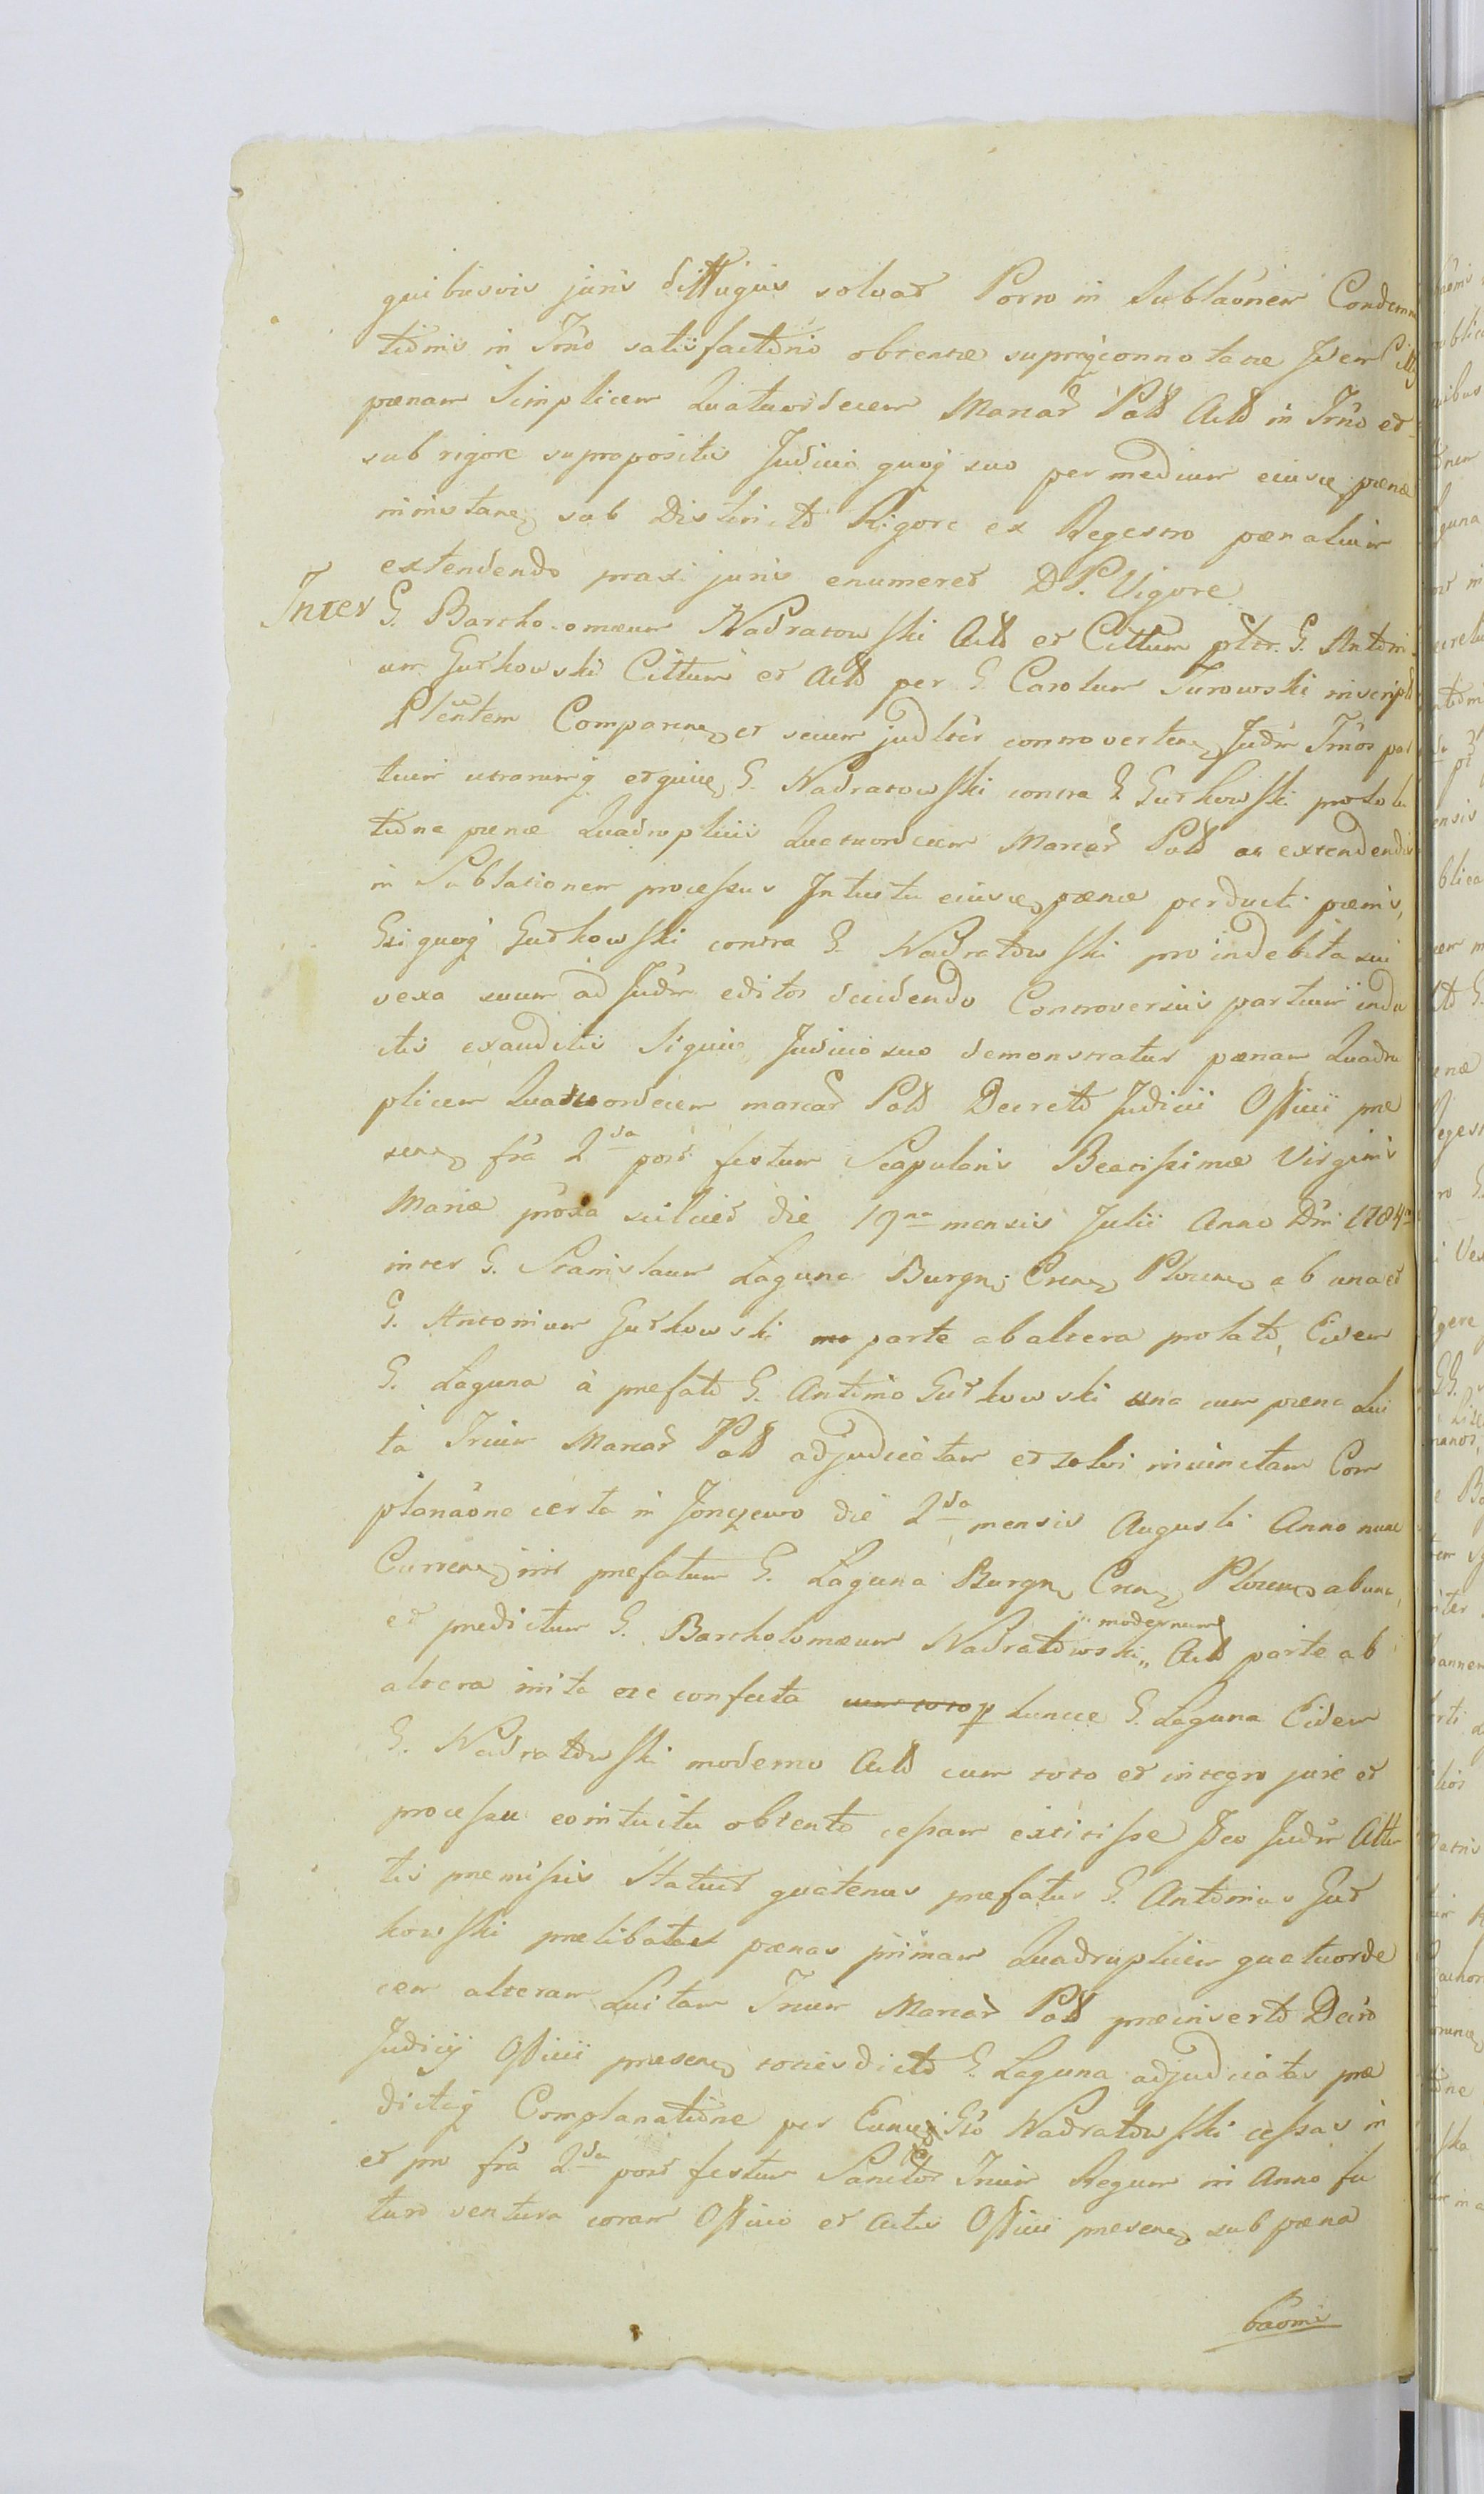 quibusvis juris diffugiis solvat Porro in Sublaõnem Condemna
tiõnis in Trno satisfactõrio obtentæ supraconnotatæ Idem Citt
pœnam Simplicem Quatuordecim Marcar Poll Actt in Trno et
sub rigore suprapositis Judicio quoq suo per medium eiusce pœnæ
ministane sub Districtõ Rigore ex Regestro pœnalium
extendendo praxi juris enumeret D P. Vigore
Inter G. Bartholomæum Nadratowski Actt et Cittum pltr. G. Antõni
um Gutkowski Cittum et Actt per G Carolum Turowski inscript
Plentem Comparen et secum judlter controverten Judm Trnos par
tium utrarumq ergiuice G. Nadratowski contra G Gutkowski pro solu
tiõne pœnæ Quadruplicis Quatuordecim Marcar Poll ac extendendis
in Sublationem processus Intuitu eiusce pœnæ perducti pœnis,
Gsi quoq Gutkowski contra G. Nadratõwski pro indebita sui
vexa suum ad Judm editos decidendo Controversiis partium indu
ctis exauditis Siquid Judicio suo demonstratur pœnam Quadru
plicem Quatuordecem marcar Poll Decretõ Judicii Officii præ
sen frã 2da post festum Scapularis Beatissimæ Virginis
Mariæ proxa scilicet die 19na mensis Julii Anno Dni 1784to
inter G. Stanislaum Laguna Burgn Cren Plocen ab una et
G. Antonium Gutkowski parte ab altera prolatõ, Eidem
G. Laguna à præfatõ G. Antõnio Gutkowski una cum pœna Lui
ta Trium Marcar Poll adjudicatam et solvi iniunctam Com
planaõne certa in Jonczewo die 2da mensis Augusti Anno nunc
Curren int præfatum G. Laguna Burgn Cren Plocen ab una,
et prædictum G. Bartholomæum Nadratõwski „ modernum Actt parte ab
altera inita ac confecta cum toto p hunce G. Laguna Eidem
G. Nadratõwski moderno Actt cum toto et integro jure et
processu eointuitu obtentõ cessam extitisse Ideo Judm Atten
tis præmissis Statuit quatenus præfatus G. Antõnius Gut
kowski prælibatas pœnas primam Quadruplicem quatuorde
cem alteram Luitam Trium Marcar Poll præinsertõ Decrõ
Judicij Officii præsen toties dictõ G. Laguna adjudicatas præ
dictaq Complanatiõne per Eunce Gsõ Nadratõwski cessas in
et pro frã 2da post festum Sanctõr Trium Regum in Anno fu
turo ventura coram Officio et Actis Officii præsen sub pœna
baõnis